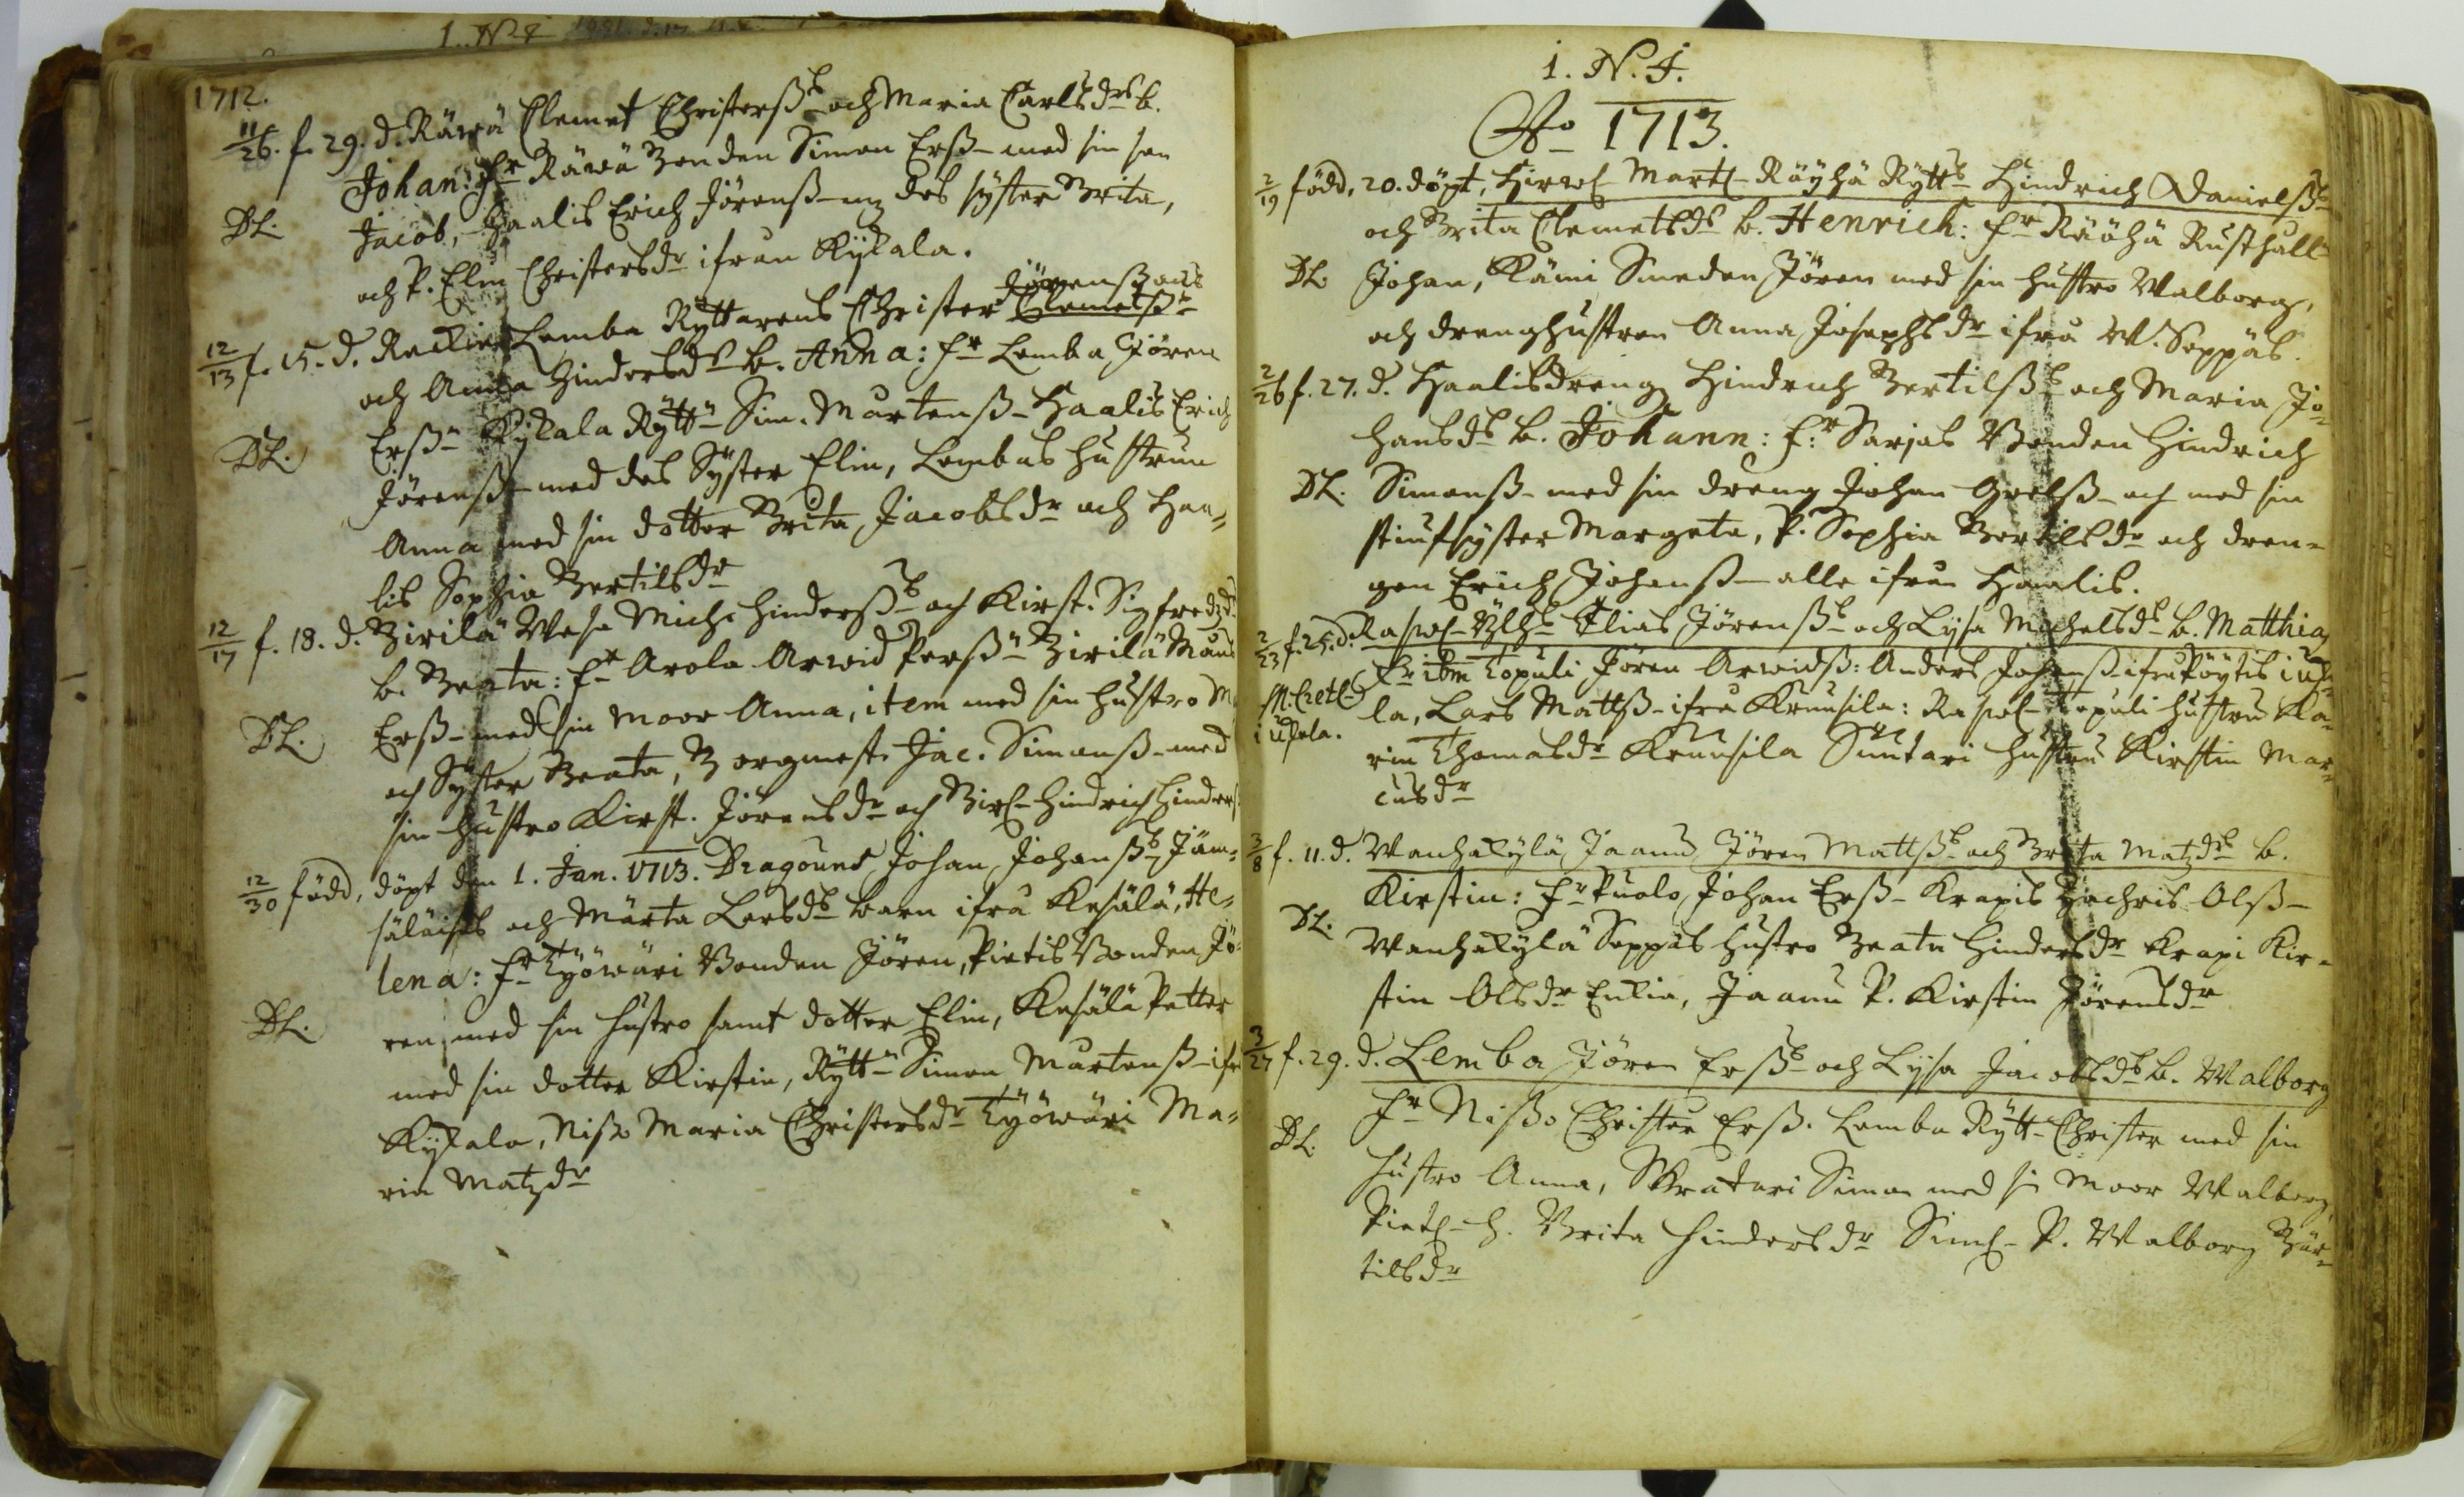 1712.
11/26. f. 29. d. Räwä Clemet Christerß~ och Maria Carlsdrs b.
Johan: fr Räwä Bonden Simon Erß- med sin son
DL. Jacob, Haalis Erich Jörenß- m des syster Brita,
och P. Elin Christersdr ifrån Kykala.
Jörenßons
12/13 f. 15. d. Lemba Ryttarens Christer Clemetß~
och Anna Hindersds b. Anna: fr Lemba Jören
Erß- Kykala Rytt- Sim. Mårtenß- Haalis Erich
DL. Jörenß- med des Syster Elin, Lembas hustrun
Anna med sin dotter Brita Jacobsdr och Haa=
lis Sophia Bertilsdr
12/17 f. 18. d. Birilä Wesa Mich: Hinderß~ och Kirst. Sigfredzd.
b. Beata: fr Arola Arwid Perß- Birilä Måns
DL. Erß- med sin Moor Anna, item med sin hustro
och Syster Beata, Borgmest. Jac. Simonß- med
sin hustro Kirst. Jörensdr och Hindrich Hinders
12/30 född, döpt den 1. Jan. 1713. Dragouns Johan Johanß~ Jäm=
säläises och Märta Larsds barn ifrå Kesälä, He=
lena: fr Työwäri Bonden Jören, Pietis Bonden Jö=
DL. ren med sin hustro samt dotter Elin, Kesälä Petter
med sin dotter Kirstin, Rytt- Simon Mårtenß- ifr
Kykala, Nißo Maria Christersdr Työwäri Ma=
ria Matzdr
1. N. J.
Ao 1713.
2/19 född, 20. döpt, Hirwes Mart- Räyhä Rytts Hindrich Danielß~
och Brita Clemetsds b. Henrich: fr Räöhä Rusthåll-
DL. Johan, Kämi Smeden Jören med sin hustro Walborg,
och drenghustron Anna Josephsdr ifrå W. Seppäs.
2/26 f. 27. d. Haalisdreng Hindrich Bertilß~ och Maria Jo=
hansds b. Johann: fr Sarjas Bonden Hindrich
DL. Simonß- med sin dreng Johan Grelß- och med sin
stiufsyster Margeta, P. Sophia Bertilsdr och dren=
gen Erich Johanß- alle ifrån Haalis.
2/23 f. 25. d. Elias Jörenß~ och Lysa Michelsds b. Matthias
fr ibm Topuli Jören Arwidß: Anders Johanß- ifrå Pöytis
la, Lars Mattß- ifrå Kruusila: Topuli hustru Ka=
rin Thomasdr Kruusila Suutari hustru Kirstin Mar=
cusdr
3/8 f. 11. d. Wanhakylä Jaanu Jören Mattß~ och Brita Matzds b.
Kirstin: fr Puolo Johan Erß- Krapis Zachris Olß-
DL. Wanhakylä Seppäs hustro Beata Hindersdr Krapi Kir=
stin Olsdr Jaanu P. Kirstin Jörensdr
3/27 f. 29. d. Lemba Jören Erß~ och Lysa Jacobsds b. Walborg
DL. fr Nißo Christer Erß. Lemba Rytt- Christer med sin
hustro Anna, Skratari Simon med si Moor Walborg,
Piets- h. Brita Hindersdr Sims- P. Walborg Bär=
tilsdr